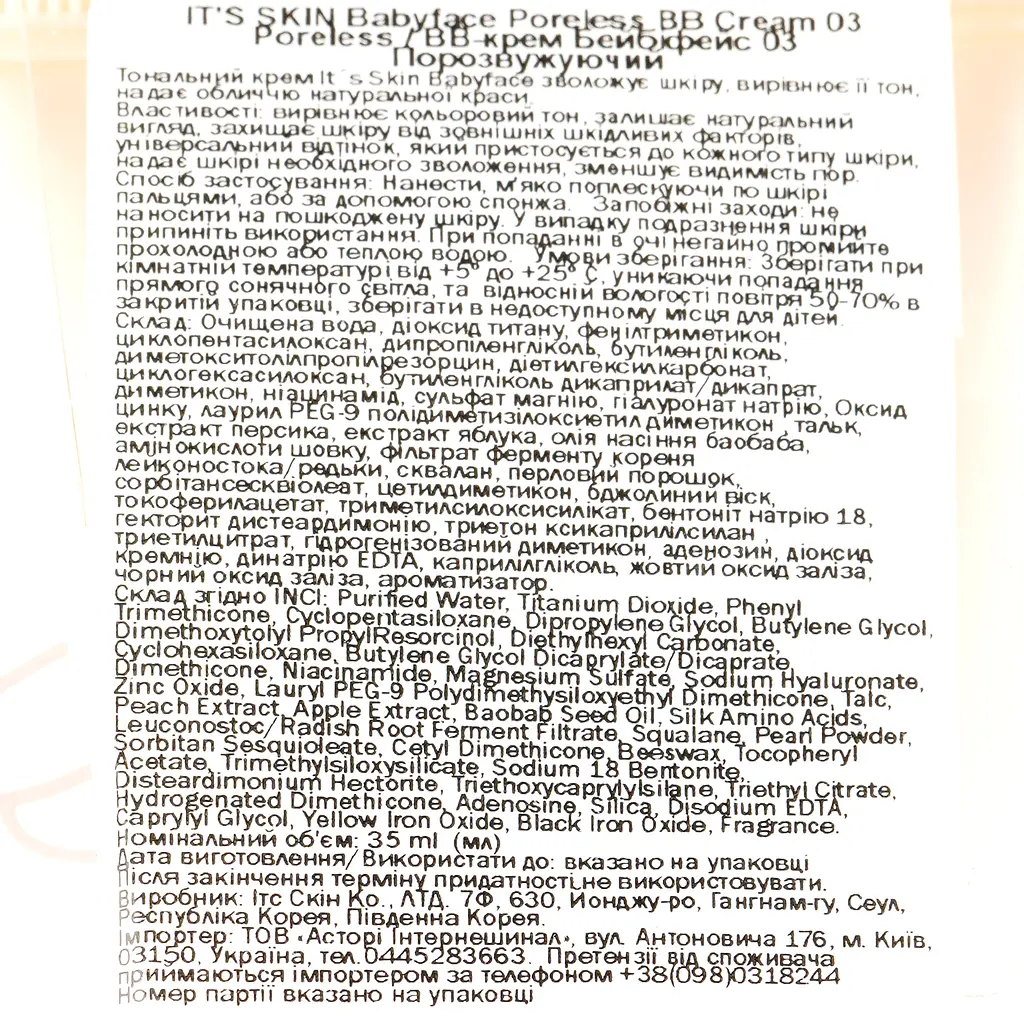 IT'S SKIN Babyface Poreless BB Cream 03
Poreless / BB-крем Бейбіфейс 03
Порозвужуючий
Тональний крем It`s Skin Babyface зволожує шкіру, вирівнює її тон,
надає обличчю натуральної краси.
Властивості: вирівнює кольоровий тон, залишає натуральний
вигляд, захищає шкіру від зовнішніх шкідливих факторів,
універсальний відтінок, який пристосується до кожного типу шкіри,
надає шкірі необхідного зволоження, зменшує видимість пор.
Спосіб застосування: Нанести, м'яко поплескуючи по шкірі
пальцями, або за допомогою спонжа. Запобіжні заходи: не
наносити на пошкоджену шкіру. У випадку подразнення шкіри
припиніть використання. При попаданні в очі негайно промийте
прохолодною або теплою водою. Умови зберігання: Зберігати при
кімнатній температурі від +5° до +25° С, уникаючи попадання
прямого сонячного світла, та відносній вологості повітря 50-70% в
закритій упаковці, зберігати в недоступному місця для дітей.
Склад: Очищена вода, діоксид титану, фенілтриметикон,
циклопентасилоксан, дипропіленгліколь, бутиленгліколь,
диметокситолілпропілрезорцин, діетилгексилкарбонат,
циклогексасилоксан, бутиленгліколь дикаприлат/дикапрат,
диметикон, ніацинамід, сульфат магнію, гіалуронат натрію, Оксид
цинку, лаурил PEG-9 полідиметизілоксиетил диметикон , тальк,
екстракт персика, екстракт яблука, олія насіння баобаба,
амінокислоти шовку, фільтрат ферменту кореня
лейконостока/редьки, сквалан, перловий порошок,
сорбітансесквіолеат, цетилдиметикон, бджолиний віск,
токоферилацетат, триметилсилоксисилікат, бентоніт натрію 18,
гекторит дистеардимонію, триетон ксикаприлілсилан ,
триетилцитрат, гідрогенізований диметикон, аденозин, діоксид
кремнію, динатрію EDTA, каприлілгліколь, жовтий оксид заліза,
чорний оксид заліза, ароматизатор.
Склад згідно INCI: Purified Water, Titanium Dioxide, Phenyl
Trimethicone, Cyclopentasiloxane, Dipropylene Glycol, Butylene Glycol,
Dimethoxytolyl PropylResorcinol, Diethylhexyl Carbonate,
Cyclohexasiloxane, Butylene Glycol Dicaprylate/Dicaprate,
Dimethicone, Niacinamide, Magnesium Sulfate, Sodium Hyaluronate,
Zinc Oxide, Lauryl PEG-9 Polydimethysiloxyethyl Dimethicone, Talc,
Peach Extract, Apple Extract, Baobab Seed Oil, Silk Amino Acids,
Leuconostoc/Radish Root Ferment Filtrate, Squalane, Pearl Powder,
Sorbitan Sesquioleate, Cetyl Dimethicone, Beeswax, Tocopheryl
Acetate, Trimethylsiloxysilicate, Sodium 18 Bentonite,
Disteardimonium Hectorite, Triethoxycaprylylsilane, Triethyl Citrate,
Hydrogenated Dimethicone, Adenosine, Silica, Disodium EDTA,
Caprylyl Glycol, Yellow Iron Oxide, Black Iron Oxide, Fragrance.
Номінальний об'єм: 35 ml (мл)
Дата виготовлення/Використати до: вказано на упаковці
Після закінчення терміну придатності не використовувати.
Виробник: Ітс Скін Ко., ЛТД. 7Ф, 630, Йонджу-ро, Гангнам-гу, Сеул,
Республіка Корея, Південна Корея.
Імпортер: ТОВ «Асторі Інтернешинал», вул. Антоновича 176, м. Київ,
03150, Україна, тел.0445283663. Претензії від споживача
приймаються імпортером за телефоном +38(098)0318244
Номер партії вказано на упаковці